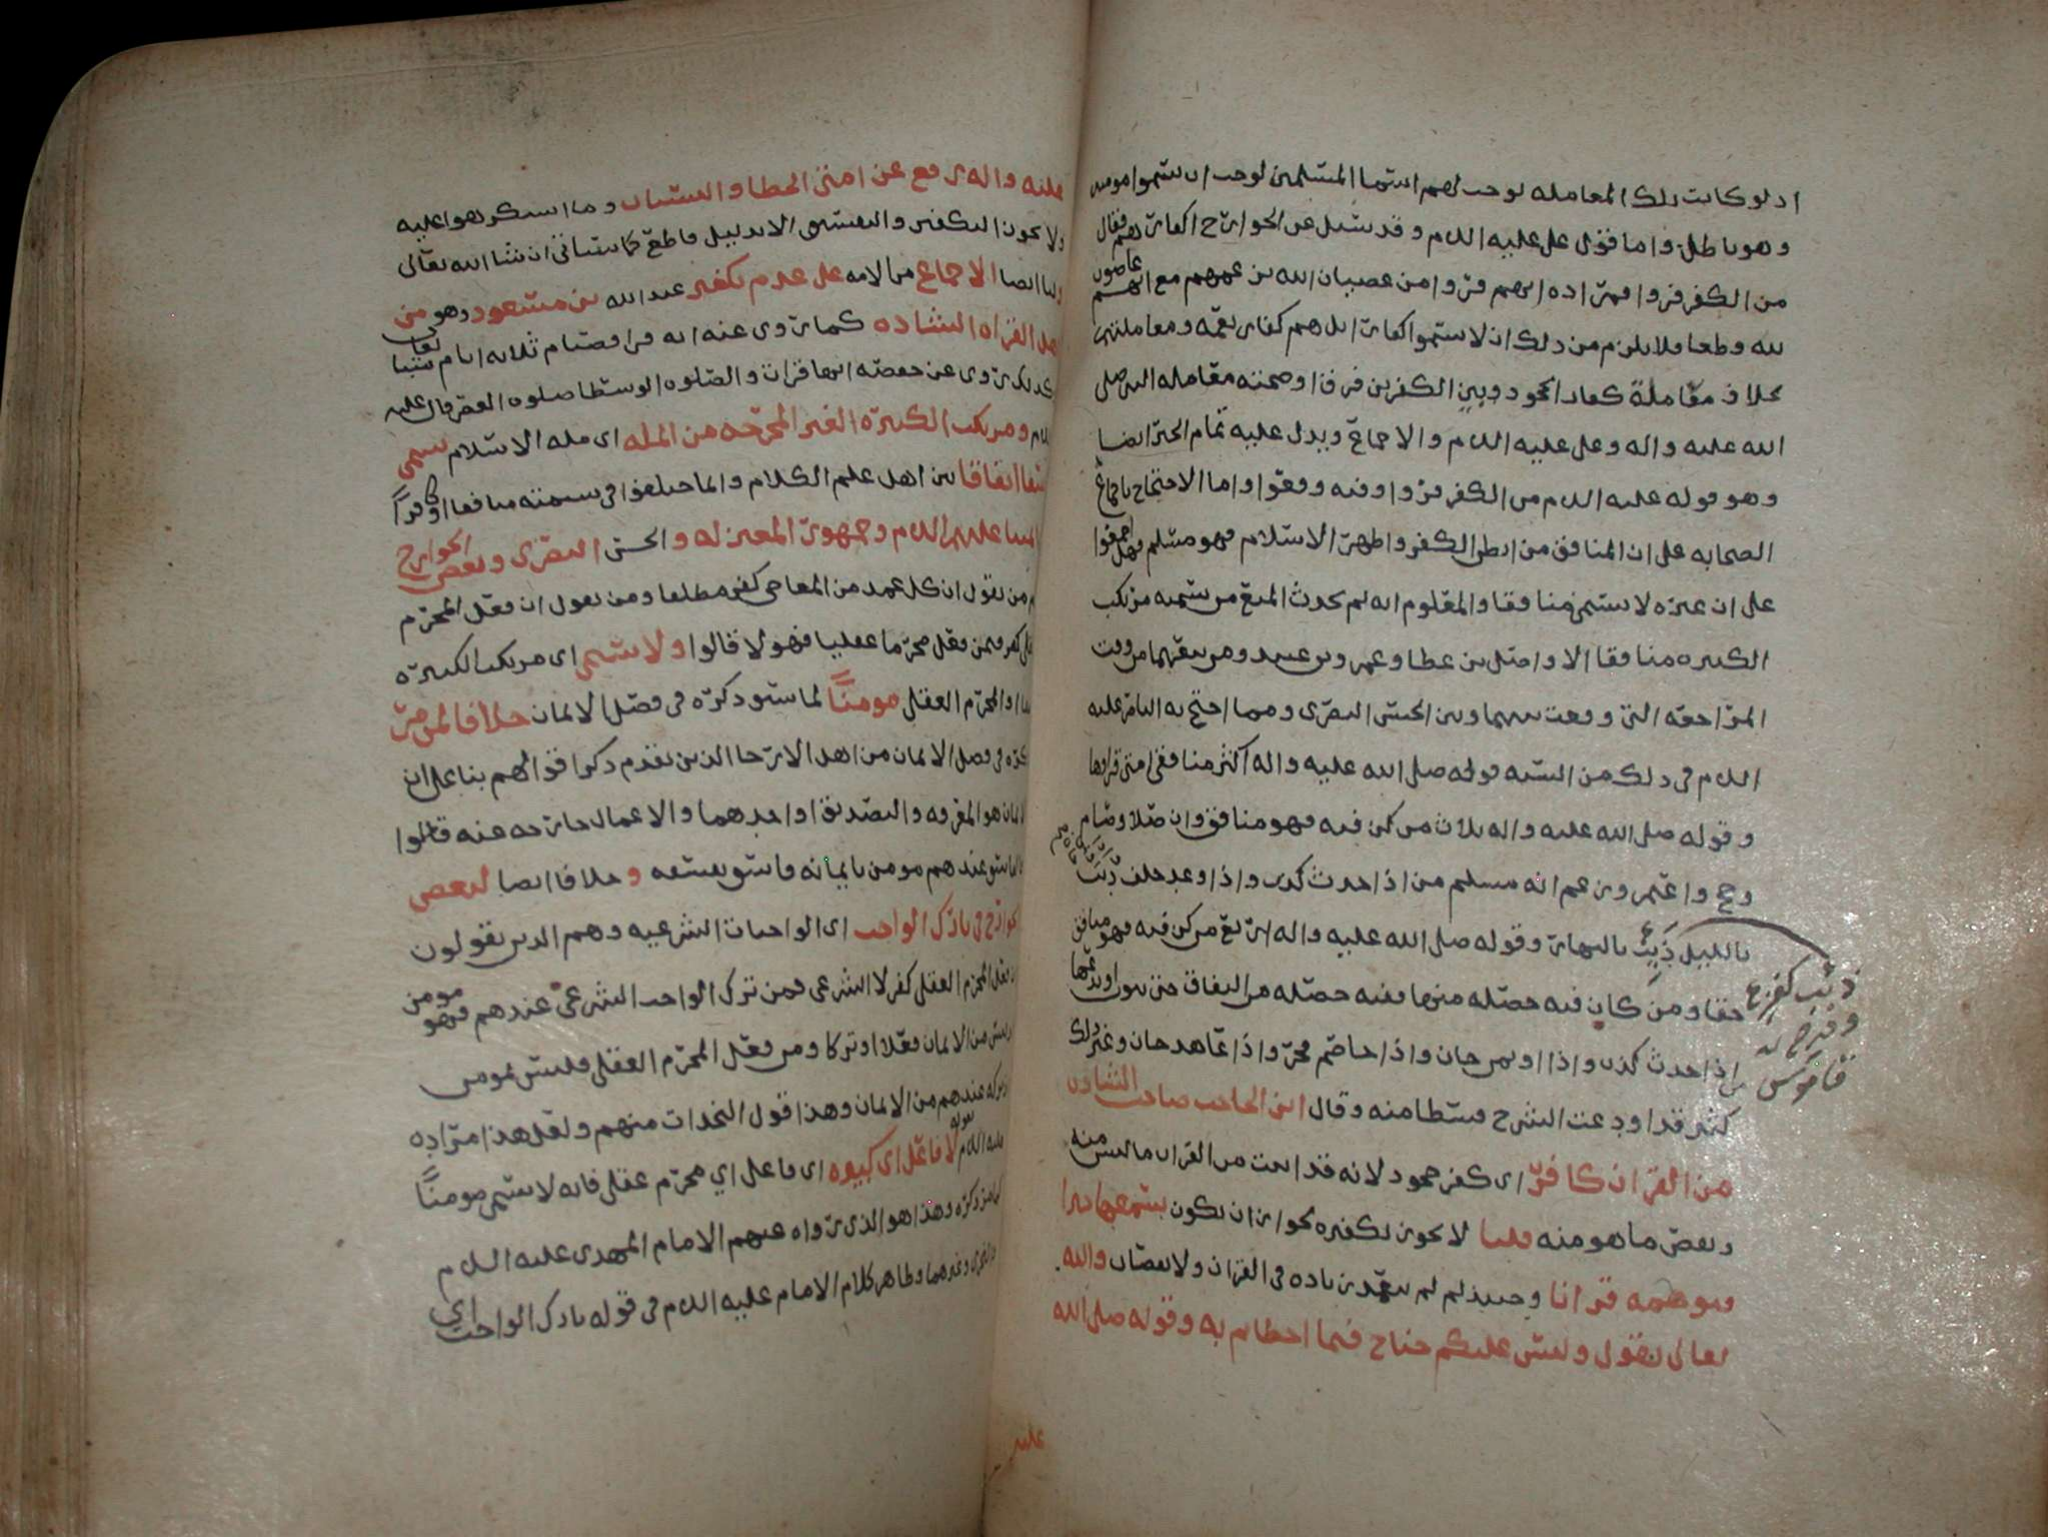 اذ لو كانت تلك المعامله توجب لهم اسما المسلمين لوجب ان يسموا مومنين
وهو باطل واما قول علي عليه السلم وقد سئل عن الخوارج اكفار هم فقال
من الكفر فروا فمراده انهم فروا من عصيان الله بزعمهم مع انهم عاصون
لله قطعا فلا يلزم من ذلك ان لا يسموا كفارا بل هم كفار نعمه ومعاملتهم
بخلاف معاملة كفار الجحود وبين الكفرين فرق اوضحته معامله النبي صلى
الله عليه واله وعلي عليه السلم والاجماع ويدل عليه تمام الخبر ايضا
وهو قوله عليه السلم من الكفر فروا وفيه وقعوا واما الاحتجاج باجماع
الصحابه على ان المنافق من ابطن الكفر واظهر الاسلام فهو مسلم فهل اجمعوا
على ان غيره لا يسمى منافقا والمعلوم انه لم يحدث المنع من تسميه مرتكب
الكبيره منافقا الا واصل بن عطا وعمرو بن عبيد ومن تبعهما من وقت
المراجعه التي وقعت بينهما وبين الحسن البصري ومما احتج به الناصر عليه
السلم في ذلك من السنه قوله صلى الله عليه واله اكثر منافقي امتي قراوها
وقوله صلى الله عليه واله ثلاث من كن فيه فهو منافق وان صلا وصام
وحج واعتمر وزعم انه مسلم من اذا حدث كذب واذا وعد خلف ذئب
بالليل ذئب بالنهار وقوله صلى الله عليه واله اربع من كن فيه فهو منافق
حقا ومن كان فيه خصله منها ففيه خصله من النفاق حتى يتوب او يدعها
من اذا حدث كذب واذا اوتمن خان واذا خاصم فجر واذا عاهد خان وغير ذلك
كثير قد اودعت الشرح قسطا منه وقال ابن الحاجب صاحب الشاذ
من القران كافر اي كفر جحود لانه قد اثبت من القران ما ليس منه
وبعض ما هو منه قلنا لا يجوز تكفيره لجواز ان يكون يسمعها خبرا
فتوهمه قرانا وحينئذ لم يتعمد زياده في القران ولا نقصان والله
تعالى يقول وليس عليكم جناح فيما اخطاتم به وقوله صلى الله
عليه
ذئب كفرح
قاموس
عليه واله رفع عن امتي الخطا والنسيان وما استكرهوا عليه
ولا يجوز التكفير والتفسيق الا بدليل قاطع كما سياتي ان شا الله تعالى
ولنا ايضا الاجماع من الامه على عدم تكفير عبد الله بن مسعود وهو من
اهل القراه الشاذه كما روى عنه انه قرا فصيام ثلاثه ايام متتابعات
وكذلك روى عن حفصه انها قرات والصلوه الوسطا صلوه العصر قال عليه
السلم ومرتكب الكبيره الغير المخرجه من المله اي مله الاسلام يسمى
فاسقا اتفاقا بين اهل علم الكلام وانما اختلفوا في تسميته منافقا او كافرا
ائمتنا عليهم السلم وجمهور المعتزله والحسن البصري وبعض الخوارج
وهم من يقول ان كل عمد من المعاصي كفر مطلقا ومن يقول ان فعل المحرم
العقلي كفر فيمن فعل محرما عقليا فهولا قالوا ولا يسمى اي مرتكب الكبيره
والمحرم العقلي مومنا لما سيو ذكره في فصل الايمان خلافا لمن مر
ذكره في فصل الايمان من اهل الارجا الذين تقدم ذكر اقوالهم بنا على ان
الايمان هو المعرفه والتصديق او احدهما والاعمال خارجه عنه قالوا
فالفاسق عندهم مومن بايمانه فاسق بفسقه وخلافا ايضا لبعض
الخوارج في تارك الواجب اي الواجبات الشرعيه وهم الذين يقولون
ان فعل المحرم العقلي كفر لا الشرعي فمن ترك الواجب الشرعي عندهم فهو مومن
اذ ليس من الايمان فعلا وتركا ومن فعل المحرم العقلي فليس بمومن
اذ تركه عندهم من الايمان وهذا قول النجدات منهم ولعل هذا مراده
عليه السلم بقوله لا فاعل اي كبيره اي فاعل اي محرم عقلي فانه لا يسمى مومنا
كما مر ذكره وهذا هو الذي رواه عنهم الامام المهدي عليه السلم
والنجري وغيرهما وظاهر كلام الامام عليه السلم في قوله تارك الواجب اي